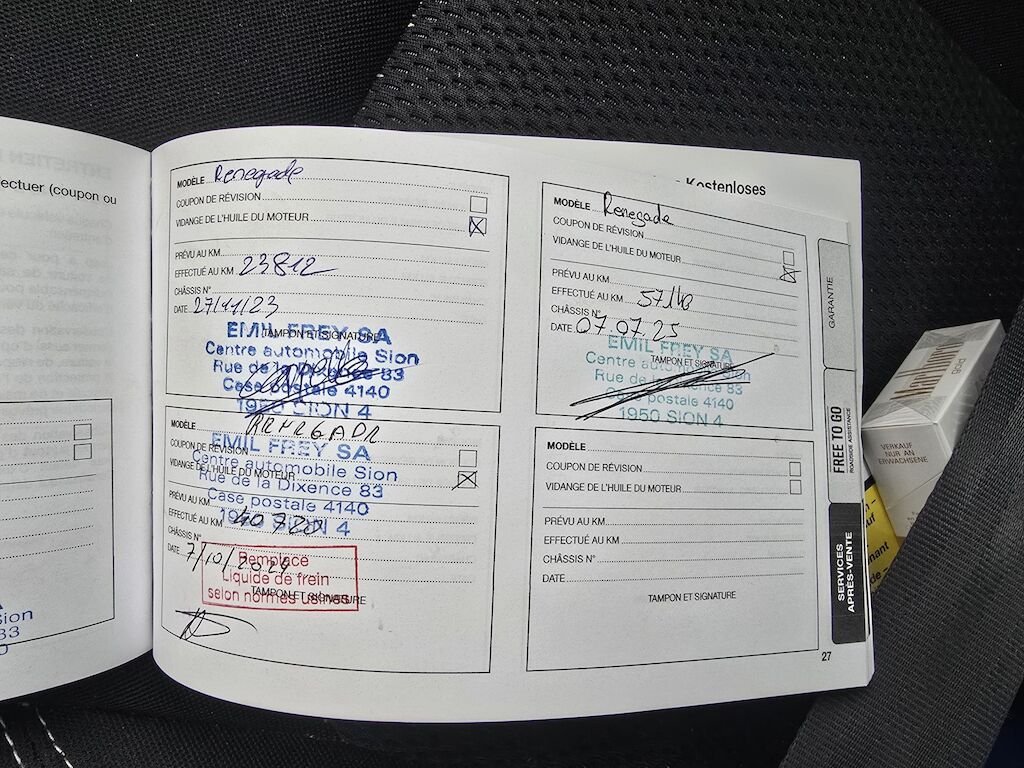 ectuer (coupon ou
MODÈLE Renegade
COUPON DE RÉVISION
VIDANGE DE L'HUILE DU MOTEUR
PRÉVU AU KM
EFFECTUÉ AU KM 23812
CHÂSSIS N°
DATE 27/11/23
TAMPON ET SIGNATURE
EMIL FREY SA
Centre automobile Sion
Rue de la Dixence 83
Case postale 4140
1950 SION 4
MODÈLE
COUPON DE RÉVISION
VIDANGE DE L'HUILE DU MOTEUR
EMIL FREY SA
Centre automobile Sion
Rue de la Dixence 83
Case postale 4140
1950 SION 4
PRÉVU AU KM
EFFECTUÉ AU KM 40720
CHÂSSIS N°
DATE 7/10/2024
Remplacé
Liquide de frein
selon normes usines
TAMPON ET SIGNATURE
Kostenloses
MODÈLE Renegade
COUPON DE RÉVISION
VIDANGE DE L'HUILE DU MOTEUR
PRÉVU AU KM
EFFECTUÉ AU KM
CHÂSSIS N°
DATE 07.07.25
TAMPON ET SIGNATURE
EMIL FREY SA
Centre automobile Sion
Rue de la Dixence 83
Case postale 4140
1950 SION 4
MODÈLE
COUPON DE RÉVISION
VIDANGE DE L'HUILE DU MOTEUR
PRÉVU AU KM
EFFECTUÉ AU KM
CHÂSSIS N°
DATE
TAMPON ET SIGNATURE
27
GARANTIE
FREE TO GO
ROADSIDE ASSISTANCE
SERVICES
APRÈS-VENTE
Marlboro
VERKAUF
NUR AN
ERWACHSENE
Sion
83